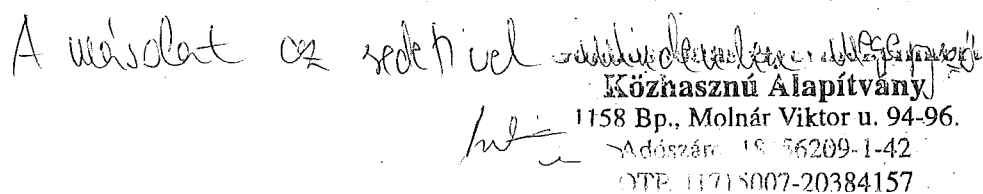 A másolat az eredetivel mindenben megegyező
Közhasznú Alapítvány
1158 Bp., Molnár Viktor u. 94-96.
Adószám: 56209-1-42
OTP 11715007-20384157